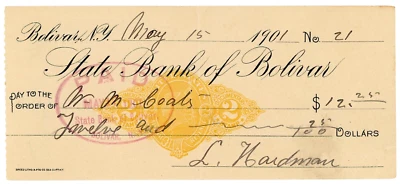 Bolivar, N.Y. May 15 1901 No 21
State Bank of Bolivar
PAID
PAY TO THE
ORDER OF W. M. Coats $12.25
State Bank
BOLIVAR, N.Y.
2
Twelve and 25/100 DOLLARS
L. Hardman